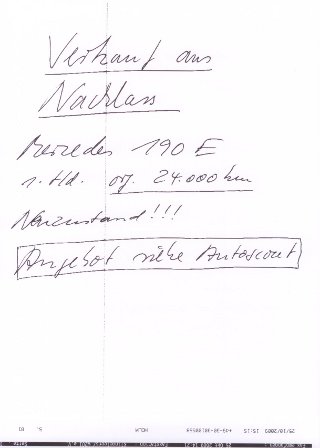 Verkauf aus
Nachlass
Mercedes 190 E
1. Hd. org. 24.000 km
Neuzustand!!!
Angebot siehe Autoscout